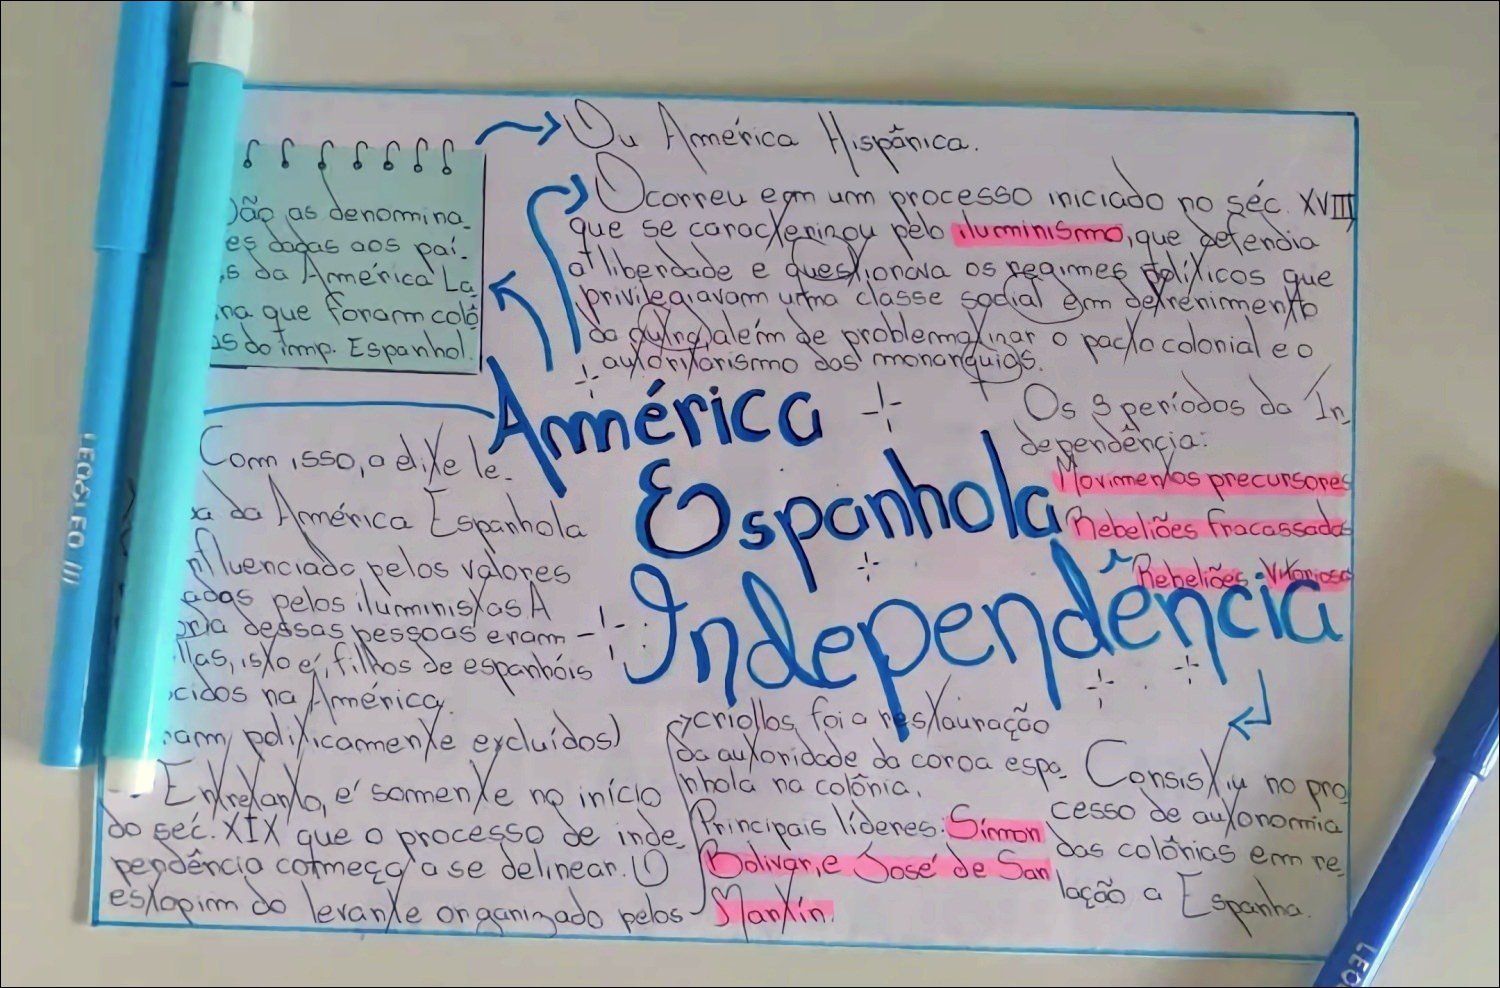 Ou América Hispânica.
Ocorreu em um processo iniciado no séc. XVIII
que se caracterizou pelo iluminismo, que defendia
a liberdade e questionava os regimes políticos que
privilegiavam uma classe social em detrenimento
da outra, além de problematinar o pacto colonial e o
autoritarismo das monarquias.
ão as denomina_
es dadas aos paí_
s da América La_
na que foram colô
as do imp. Espanhol.
América
Espanhola
Independência
Os 3 períodos da In_
dependência:
Movimentos precursores
Rebeliões fracassadas
Rebeliões Vitoriosa
Com isso, a elite le_
da América Espanhola
nfluenciada pelos valores
adas pelos iluministas A
oria dessas pessoas eram
llas, isto é, filhos de espanhóis
cidos na América.
ram politicamente excluídos)
Entretanto, é somente no início
do séc. XIX que o processo de inde_
pendência começa a se delinear. O
estopim do levante organizado pelos
criollos foi a restauração
da autoridade da coroa espa_
nhola na colônia.
Principais líderes: Símon
Bolivar, e José de San
Martín.
Consistiu no pro_
cesso de autonomia
das colônias em re_
lação a Espanha.
LEO&LEO
LEO